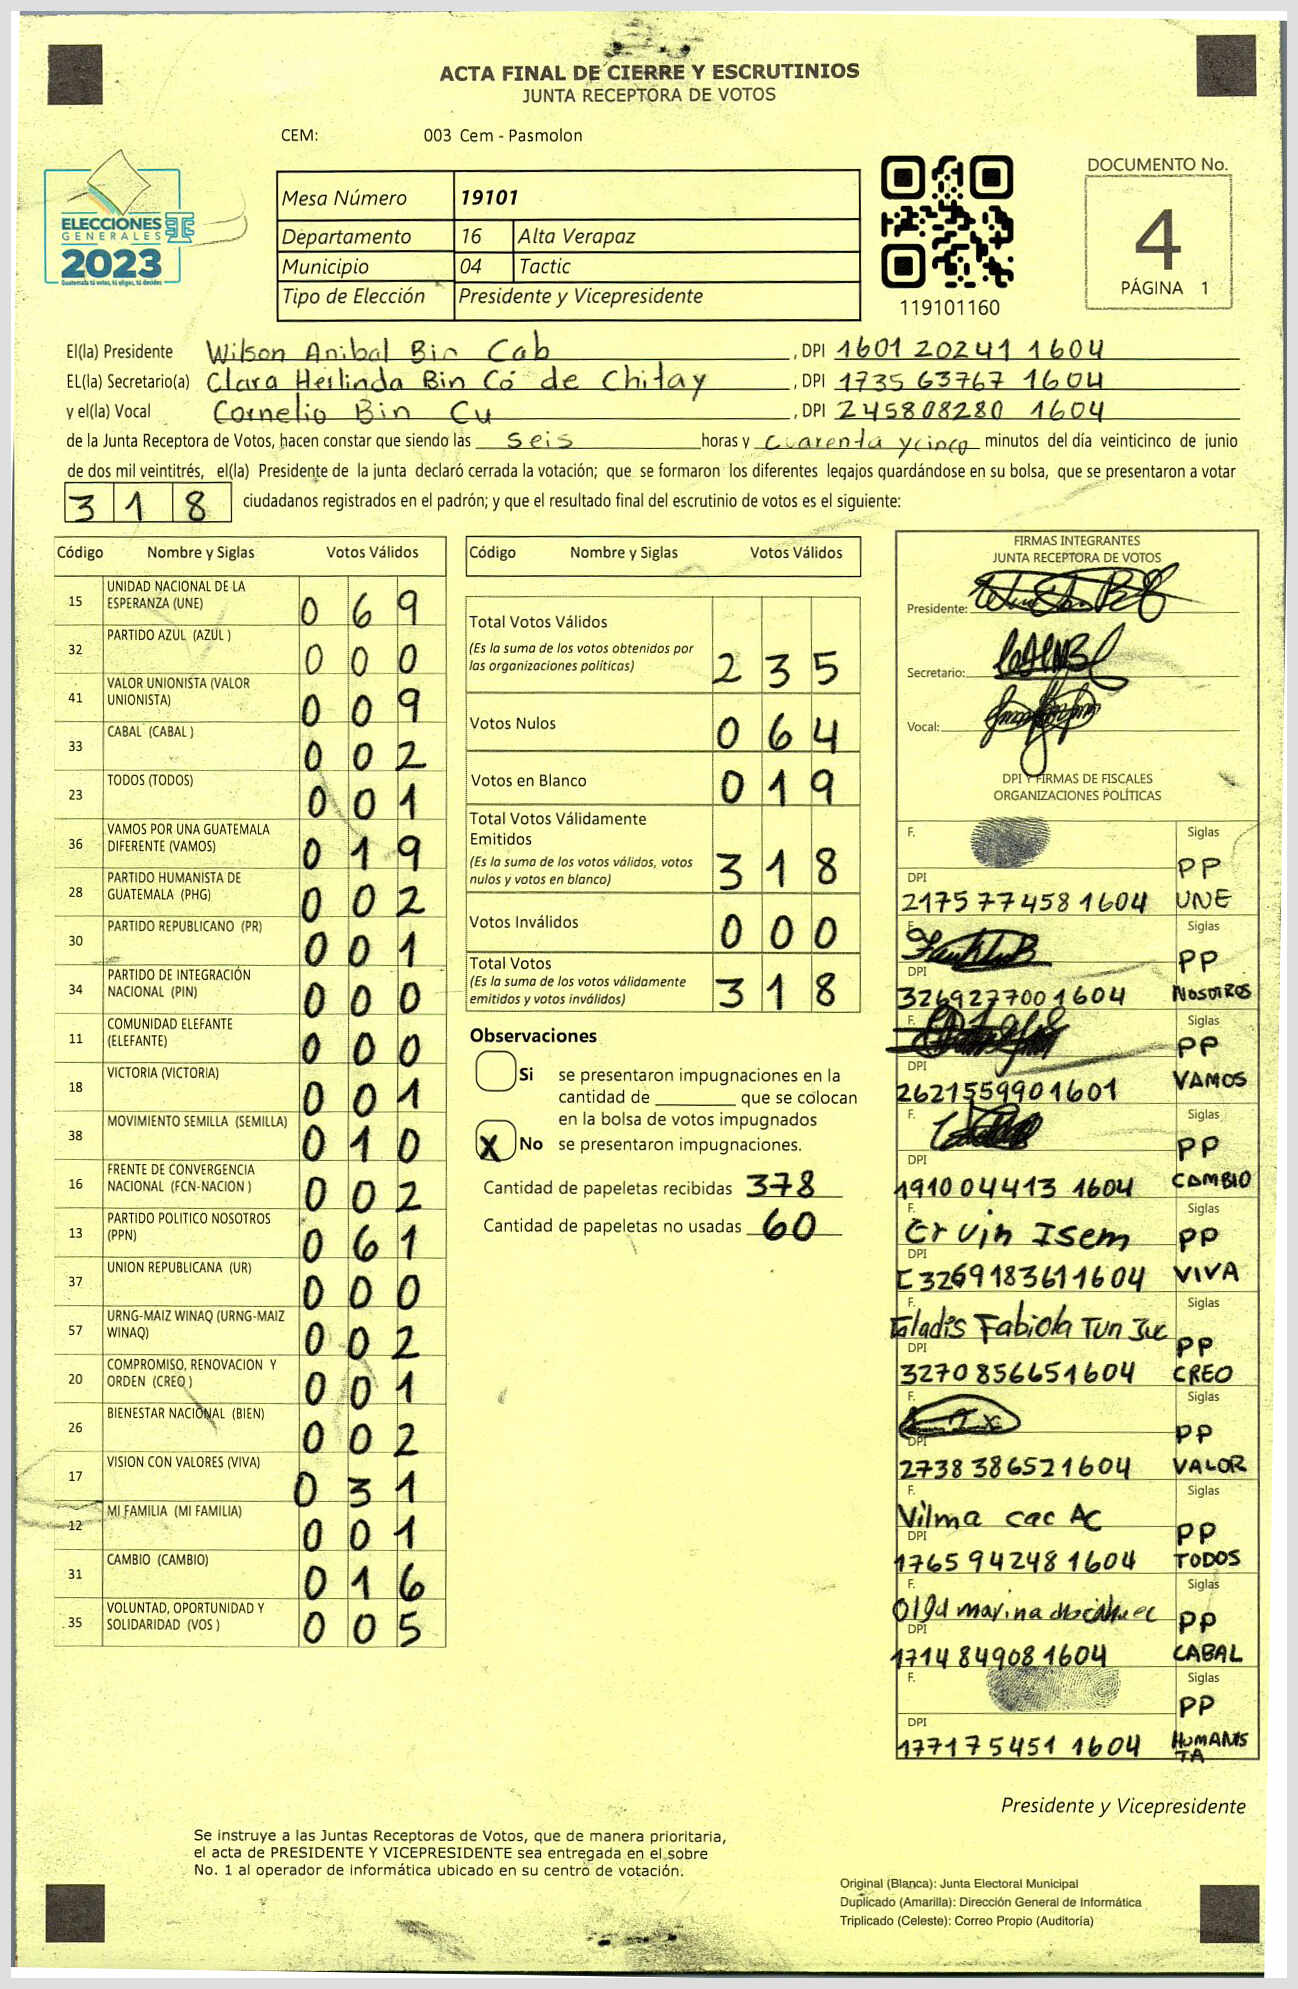 ACTA FINAL DE CIERRE Y ESCRUTINIOS
JUNTA RECEPTORA DE VOTOS
CEM: 003 Cem - Pasmolon
ELECCIONES
GENERALES
2023
Guatemala tú votas, tú eliges, tú decides
Mesa Número 19101
Departamento 16 Alta Verapaz
Municipio 04 Tactic
Tipo de Elección Presidente y Vicepresidente
119101160
DOCUMENTO No.
4
PÁGINA 1
El(la) Presidente Wilson Anibal Bin Cab , DPI 1601 20241 1604
EL(la) Secretario(a) Clara Herlinda Bin Có de Chitay , DPI 1735 63767 1604
y el(la) Vocal Cornelio Bin Cu , DPI 245808280 1604
de la Junta Receptora de Votos, hacen constar que siendo las seis horas y cuarenta y cinco minutos del día veinticinco de junio
de dos mil veintitrés, el(la) Presidente de la junta declaró cerrada la votación; que se formaron los diferentes legajos guardándose en su bolsa, que se presentaron a votar
318 ciudadanos registrados en el padrón; y que el resultado final del escrutinio de votos es el siguiente:
Código Nombre y Siglas Votos Válidos
15 UNIDAD NACIONAL DE LA
ESPERANZA (UNE) 069
32 PARTIDO AZUL (AZUL ) 000
41 VALOR UNIONISTA (VALOR
UNIONISTA) 009
33 CABAL (CABAL ) 002
23 TODOS (TODOS) 001
36 VAMOS POR UNA GUATEMALA
DIFERENTE (VAMOS) 019
28 PARTIDO HUMANISTA DE
GUATEMALA (PHG) 002
30 PARTIDO REPUBLICANO (PR) 001
34 PARTIDO DE INTEGRACIÓN
NACIONAL (PIN) 000
11 COMUNIDAD ELEFANTE
(ELEFANTE) 000
18 VICTORIA (VICTORIA) 001
38 MOVIMIENTO SEMILLA (SEMILLA) 010
16 FRENTE DE CONVERGENCIA
NACIONAL (FCN-NACION ) 002
13 PARTIDO POLITICO NOSOTROS
(PPN) 061
37 UNION REPUBLICANA (UR) 000
57 URNG-MAIZ WINAQ (URNG-MAIZ
WINAQ) 002
20 COMPROMISO, RENOVACION Y
ORDEN (CREO ) 001
26 BIENESTAR NACIONAL (BIEN) 002
17 VISION CON VALORES (VIVA) 031
12 MI FAMILIA (MI FAMILIA) 001
31 CAMBIO (CAMBIO) 016
35 VOLUNTAD, OPORTUNIDAD Y
SOLIDARIDAD (VOS ) 005
Código Nombre y Siglas Votos Válidos
Total Votos Válidos
(Es la suma de los votos obtenidos por
las organizaciones políticas) 235
Votos Nulos 064
Votos en Blanco 019
Total Votos Válidamente
Emitidos
(Es la suma de los votos válidos, votos
nulos y votos en blanco) 318
Votos Inválidos 000
Total Votos
(Es la suma de los votos válidamente
emitidos y votos inválidos) 318
Observaciones
Si se presentaron impugnaciones en la
cantidad de ________ que se colocan
en la bolsa de votos impugnados
X No se presentaron impugnaciones.
Cantidad de papeletas recibidas 378
Cantidad de papeletas no usadas 60
FIRMAS INTEGRANTES
JUNTA RECEPTORA DE VOTOS
Presidente:
Secretario:
Vocal:
DPI Y FIRMAS DE FISCALES
ORGANIZACIONES POLÍTICAS
F. Siglas
PP
DPI
2175 77458 1604 UNE
F. Siglas
PP
DPI
326927700 1604 NOSOTROS
F. Siglas
PP
DPI
262155990 1601 VAMOS
F. Siglas
PP
DPI
191004413 1604 CAMBIO
F. Siglas
Ervin Isem PP
DPI
326918361 1604 VIVA
F. Siglas
Gladis Fabiola Tun PP
DPI
3270 85665 1604 CREO
F. Siglas
PP
DPI
2738 38652 1604 VALOR
F. Siglas
Vilma cac Ac PP
DPI
1765 94248 1604 TODOS
F. Siglas
Olga marina PP
DPI
1714 84908 1604 CABAL
F. Siglas
PP
DPI
177175451 1604 HUMANIS
TA
Presidente y Vicepresidente
Se instruye a las Juntas Receptoras de Votos, que de manera prioritaria,
el acta de PRESIDENTE Y VICEPRESIDENTE sea entregada en el sobre
No. 1 al operador de informática ubicado en su centro de votación.
Original (Blanca): Junta Electoral Municipal
Duplicado (Amarilla): Dirección General de Informática
Triplicado (Celeste): Correo Propio (Auditoría)